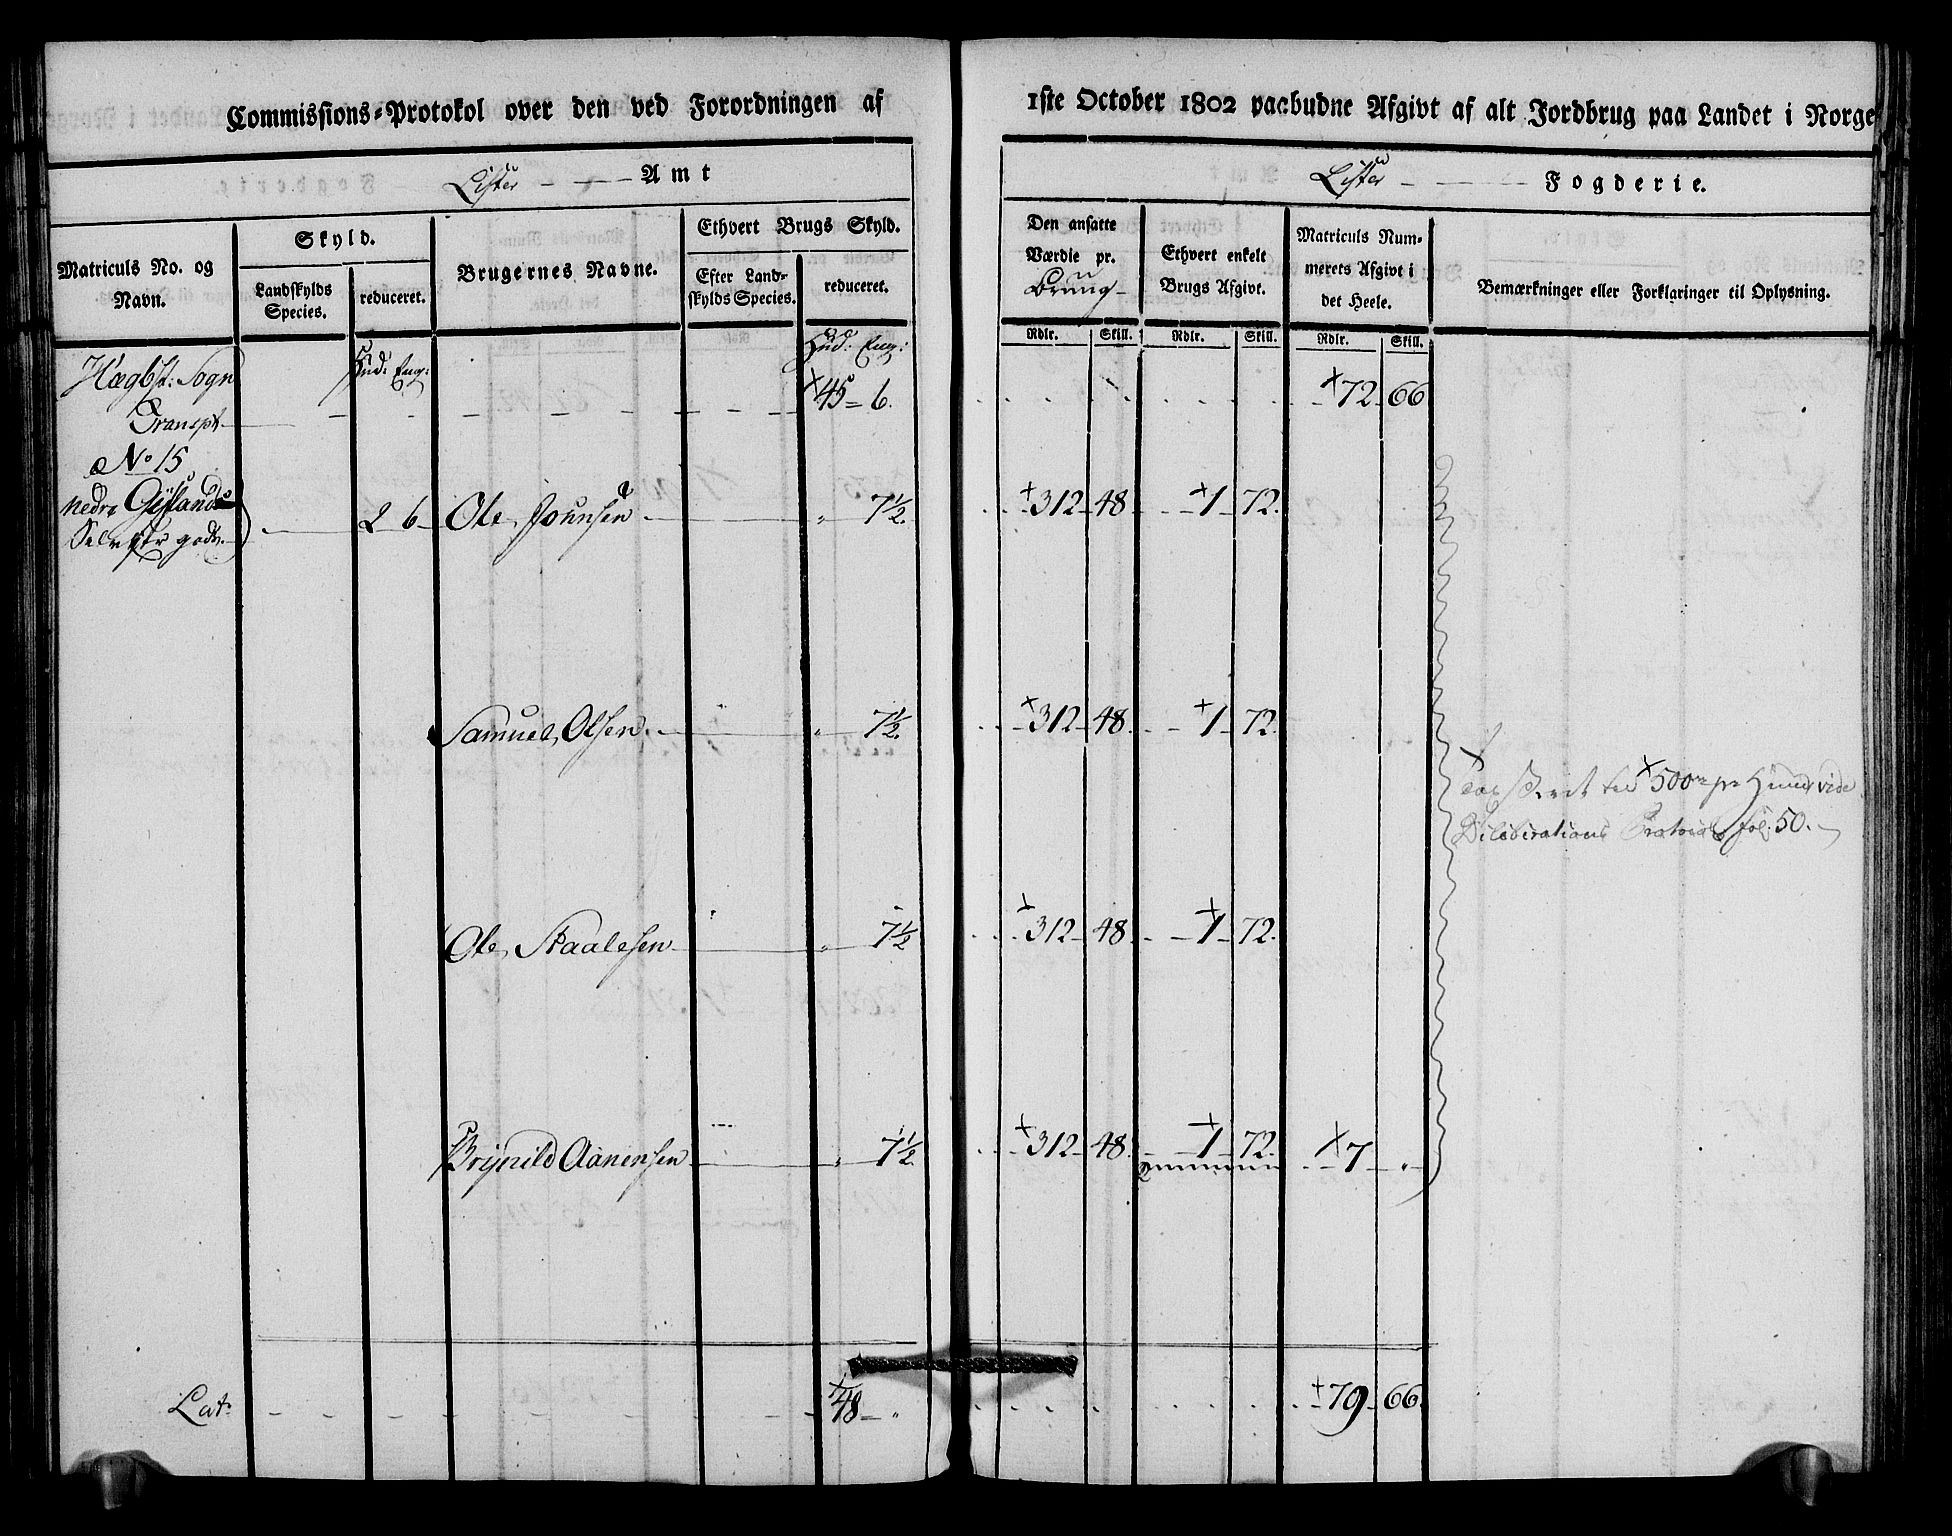 Commissions-Protokol over den ved Forordningen af 1ste October 1802 paabudne Afgivt af alt Jordbrug paa Landet i Norge
Lister - - - Amt
Lister - - - Fogderie.
Matriculs No. og Navn.
Skyld.
Landskylds Species.
reduceret.
Brugernes Navne.
Ethvert Brugs Skyld.
Efter Landskylds Species.
reduceret.
Den ansatte Værdie pr. Brug
Ethvert enkelt Brugs Afgivt.
Matriculs Nummerets Afgivt i det Heele.
Bemærkninger eller Forklaringer til Oplysning.
Rdlr. Skill. Rdlr. Skill. Rdlr. Skill.
Hægbst: Sogn Hud: Eng: Hud: Eng:
Transpt - - - 45 - 6. - - - 72 - 66
No 15
nedre Gysland
Selvejer gods 2 6 Ole Johnsen - " 7½. 312 - 48 - 1 - 72.
Samuel Olsen. - " 7½. 312 - 48. - 1 - 72.
500 rd pr Hund vide
Deliberations Protocol fol: 50.
Ole Staalesen - " 7½ 312 - 48. - 1 - 72.
Brynild Aanensen - " 7½ 312 - 48. - 1 - 72. - 7 - "
Lat: - - - 48 - " - - - 79 - 66.